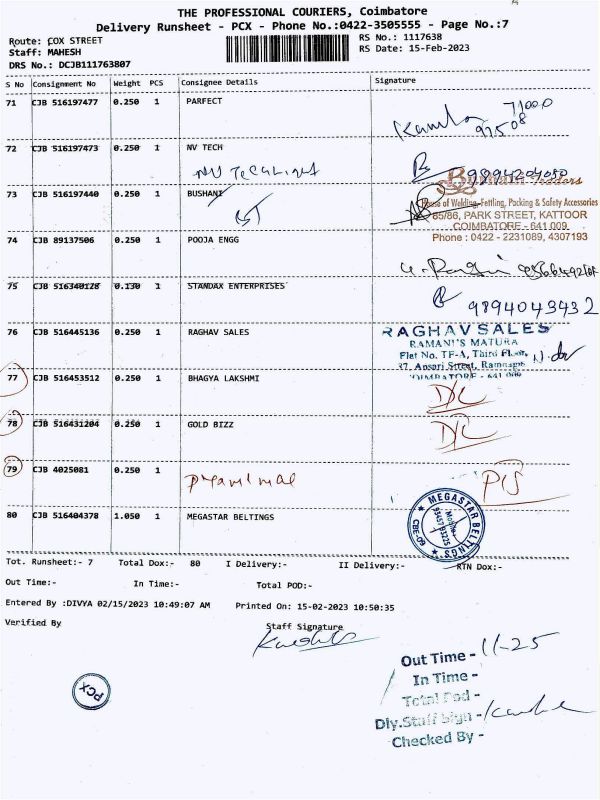 THE PROFESSIONAL COURIERS, Coimbatore
Delivery Runsheet - PCX - Phone No.:0422-3505555 - Page No.:7
Route: COX STREET
RS No.: 1117638
Staff: MAHESH
RS Date: 15-Feb-2023
DRS No.: DCJB111763807
S.No Consignment No Weight PCS Consignee Details Signature
71 CJB 516197477 0.250 1 PARFECT
72 CJB 516197473 0.250 1 NV TECH
9894204080
73 CJB 516197440 0.250 1 BUSHANI
House of Welding, Fettling, Packing & Safety Accessories
65/86, PARK STREET, KATTOOR
COIMBATORE - 641 009
Phone : 0422 - 2231089, 4307193
74 CJB 89137506 0.250 1 POOJA ENGG
75 CJB 516340128 0.130 1 STANDAX ENTERPRISES
9894043432
76 CJB 516445136 0.250 1 RAGHAV SALES
RAGHAV SALES
RAMANI'S MATURA
Flat No. TF-A, Third Floor,
37, Ansari Street, Ramnagar
COIMBATORE - 641 009
77 CJB 516453512 0.250 1 BHAGYA LAKSHMI
D/C
78 CJB 516431204 0.250 1 GOLD BIZZ
D/C
79 CJB 4025081 0.250 1
80 CJB 516404378 1.050 1 MEGASTAR BELTINGS
MEGASTAR BELTINGS
Tot. Runsheet:- 7 Total Dox:- 80 I Delivery:- II Delivery:- RTN Dox:-
Out Time:- In Time:- Total POD:-
Entered By :DIVYA 02/15/2023 10:49:07 AM Printed On: 15-02-2023 10:50:35
Verified By Staff Signature
Out Time - 11-25
In Time -
Total Pod -
Dly.Staff Sign -
Checked By -
PCX